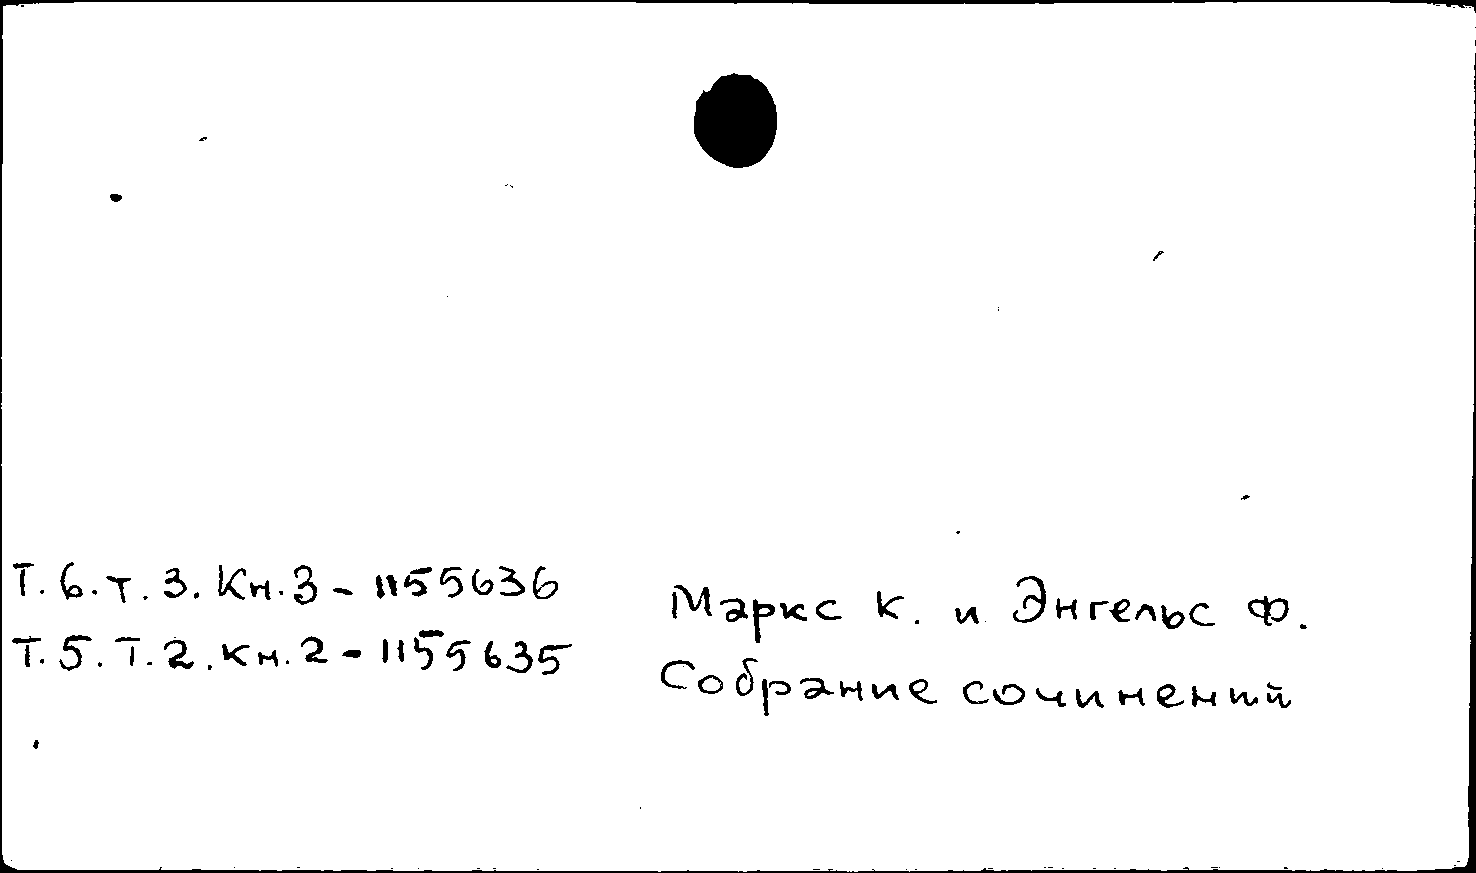 Т. 6. т. 3. Кн. 3 - 1155636
Т. 5. Т. 2. кн. 2 - 1155635
Маркс К. и Энгельс Ф.
Собрание сочинений